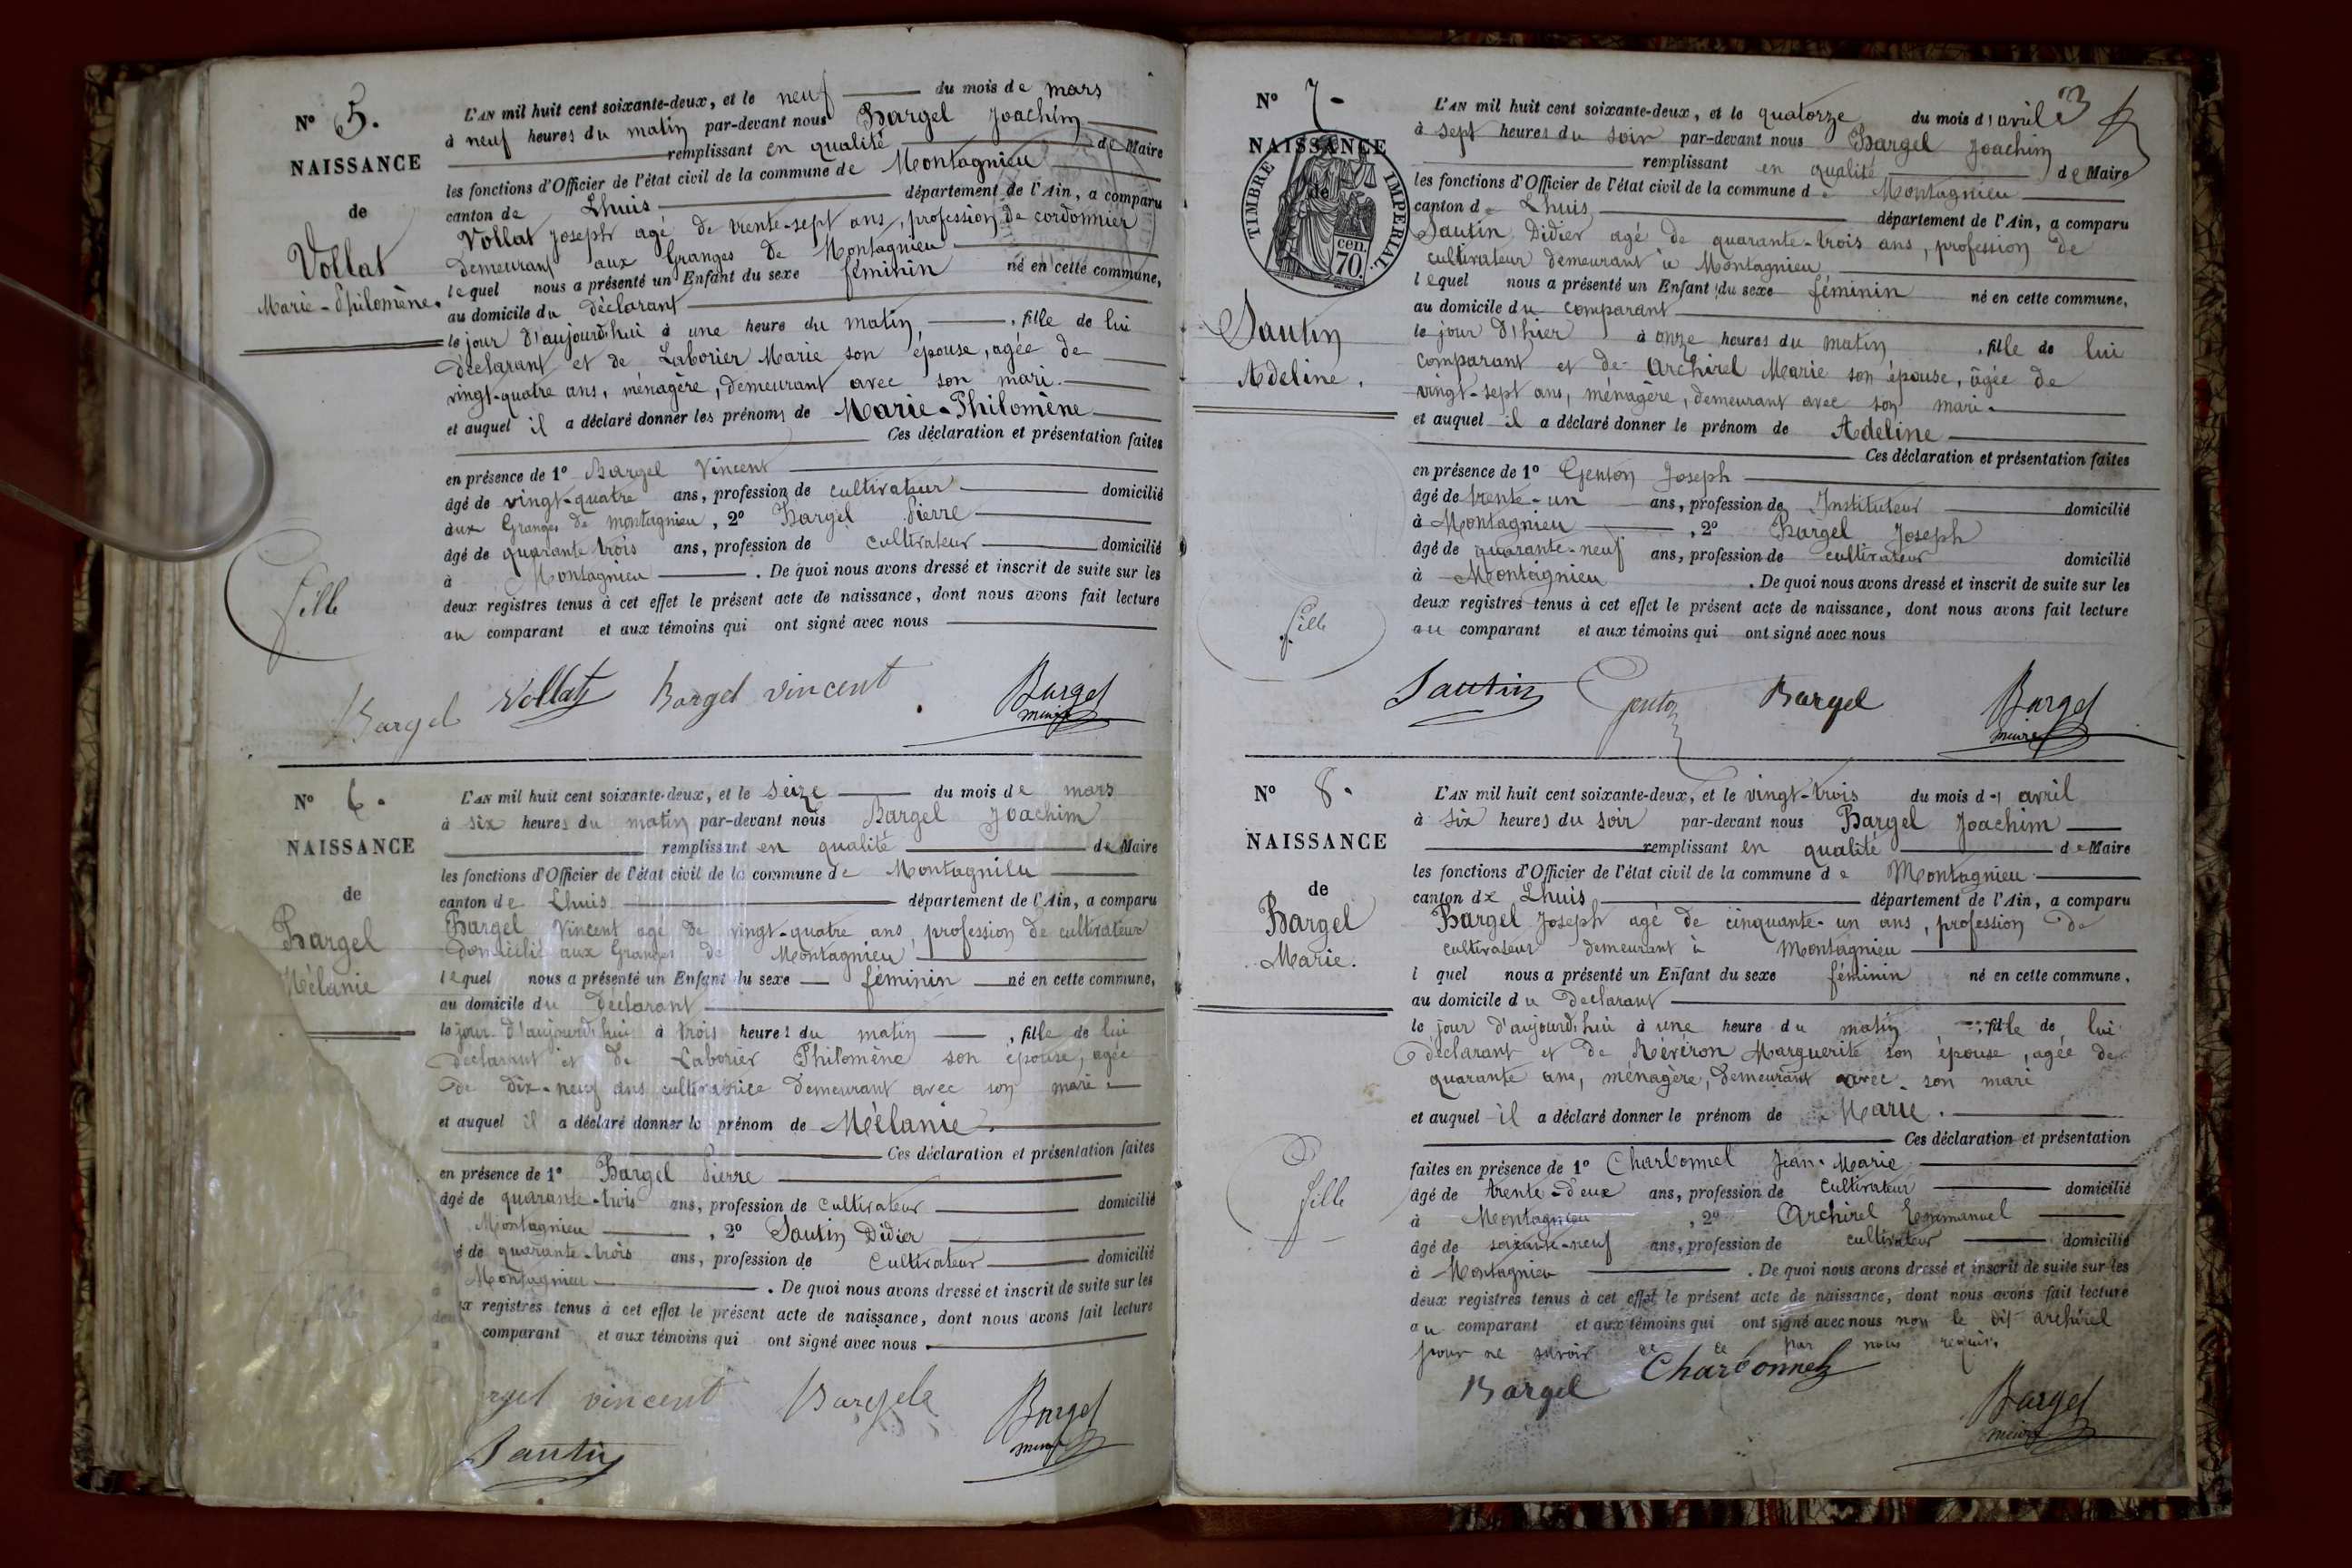 N° 5.
NAISSANCE
de
Vollat
Marie-Philomène.
L'AN mil huit cent soixante-deux, et le neuf du mois de mars
à neuf heures du matin par-devant nous Bargel Joachim
remplissant en qualité de Maire
les fonctions d'Officier de l'état civil de la commune de Montagnieu
canton de Lhuis département de l'Ain, a comparu
Vollat Joseph agé de trente-sept ans, profession de cordonnier
demeurant aux Granges de Montagnieu
lequel nous a présenté un Enfant du sexe féminin né en cette commune,
au domicile du déclarant
le jour d'aujourd'hui à une heure du matin, fille de lui
déclarant et de Laborier Marie son épouse, agée de
vingt-quatre ans, ménagère, demeurant avec son mari.
et auquel il a déclaré donner les prénoms de Marie-Philomène
Ces déclaration et présentation faites
en présence de 1° Bargel Vincent
âgé de vingt-quatre ans, profession de cultivateur domicilié
aux Granges de montagnieu, 2° Bargel Pierre
âgé de quarante trois ans, profession de cultivateur domicilié
à Montagnieu. De quoi nous avons dressé et inscrit de suite sur les
deux registres tenus à cet effet le présent acte de naissance, dont nous avons fait lecture
au comparant et aux témoins qui ont signé avec nous
Fille
Bargel Vollat Bargel vincent Bargel
maire
N° 6.
NAISSANCE
de
Bargel
Mélanie
L'AN mil huit cent soixante-deux, et le seize du mois de mars
à six heures du matin par-devant nous Bargel Joachim
remplissant en qualité de Maire
les fonctions d'Officier de l'état civil de la commune de Montagnieu
canton de Lhuis département de l'Ain, a comparu
Bargel Vincent agé de vingt-quatre ans, profession de cultivateur
domicilié aux Granges de Montagnieu
lequel nous a présenté un Enfant du sexe féminin né en cette commune,
au domicile du déclarant
le jour d'aujourd'hui à trois heures du matin, fille de lui
déclarant et de Laborier Philomène son épouse, agée
de dix-neuf ans cultivatrice demeurant avec son mari
et auquel il a déclaré donner le prénom de Mélanie.
Ces déclaration et présentation faites
en présence de 1° Bargel Pierre
âgé de quarante-trois ans, profession de cultivateur domicilié
Montagnieu, 2° Sautin Didier
é de quarante-trois ans, profession de cultivateur domicilié
Montagnieu. De quoi nous avons dressé et inscrit de suite sur les
deux registres tenus à cet effet le présent acte de naissance, dont nous avons fait lecture
comparant et aux témoins qui ont signé avec nous.
rgel vincent Bargel Bargel
maire
Sautin
3
N° 7.
NAISSANCE
de
TIMBRE IMPERIAL
cen.
70.
Sautin
Adeline.
L'AN mil huit cent soixante-deux, et le quatorze du mois d'avril
à sept heures du soir par-devant nous Bargel Joachim
remplissant en qualité de Maire
les fonctions d'Officier de l'état civil de la commune de Montagnieu
canton de Lhuis département de l'Ain, a comparu
Sautin Didier agé de quarante-trois ans, profession de
cultivateur demeurant à Montagnieu
lequel nous a présenté un Enfant du sexe féminin né en cette commune,
au domicile du comparant
le jour d'hier à onze heures du matin, fille de lui
comparant et de Archirel Marie son épouse, âgée de
vingt-sept ans, ménagère, demeurant avec son mari.
et auquel il a déclaré donner le prénom de Adeline
Ces déclaration et présentation faites
en présence de 1° Genton Joseph
âgé de trente-un ans, profession de Instituteur domicilié
à Montagnieu, 2° Bargel Joseph
âgé de quarante-neuf ans, profession de cultivateur domicilié
à Montagnieu. De quoi nous avons dressé et inscrit de suite sur les
deux registres tenus à cet effet le présent acte de naissance, dont nous avons fait lecture
au comparant et aux témoins qui ont signé avec nous
Fille
Sautin Genton Bargel Bargel
maire
N° 8.
NAISSANCE
de
Bargel
Marie.
L'AN mil huit cent soixante-deux, et le vingt-trois du mois d'avril
à six heures du soir par-devant nous Bargel Joachim
remplissant en qualité de Maire
les fonctions d'Officier de l'état civil de la commune de Montagnieu
canton de Lhuis département de l'Ain, a comparu
Bargel Joseph agé de cinquante-un ans, profession de
cultivateur demeurant à Montagnieu
l quel nous a présenté un Enfant du sexe féminin né en cette commune,
au domicile du déclarant
le jour d'aujourd'hui à une heure du matin, fille de lui
déclarant et de Révéron Marguerite son épouse, agée de
quarante ans, ménagère, demeurant avec son mari
et auquel il a déclaré donner le prénom de Marie.
Ces déclaration et présentation
faites en présence de 1° Charbonnel Jean-Marie
âgé de trente-deux ans, profession de cultivateur domicilié
à Montagnieu, 2° Archirel Emmanuel
âgé de soixante-neuf ans, profession de cultivateur domicilié
à Montagnieu. De quoi nous avons dressé et inscrit de suite sur les
deux registres tenus à cet effet le présent acte de naissance, dont nous avons fait lecture
au comparant et aux témoins qui ont signé avec nous non le dit archirel
pour ne savoir de ce par nous requis.
Fille
Bargel Charbonnel Bargel
maire